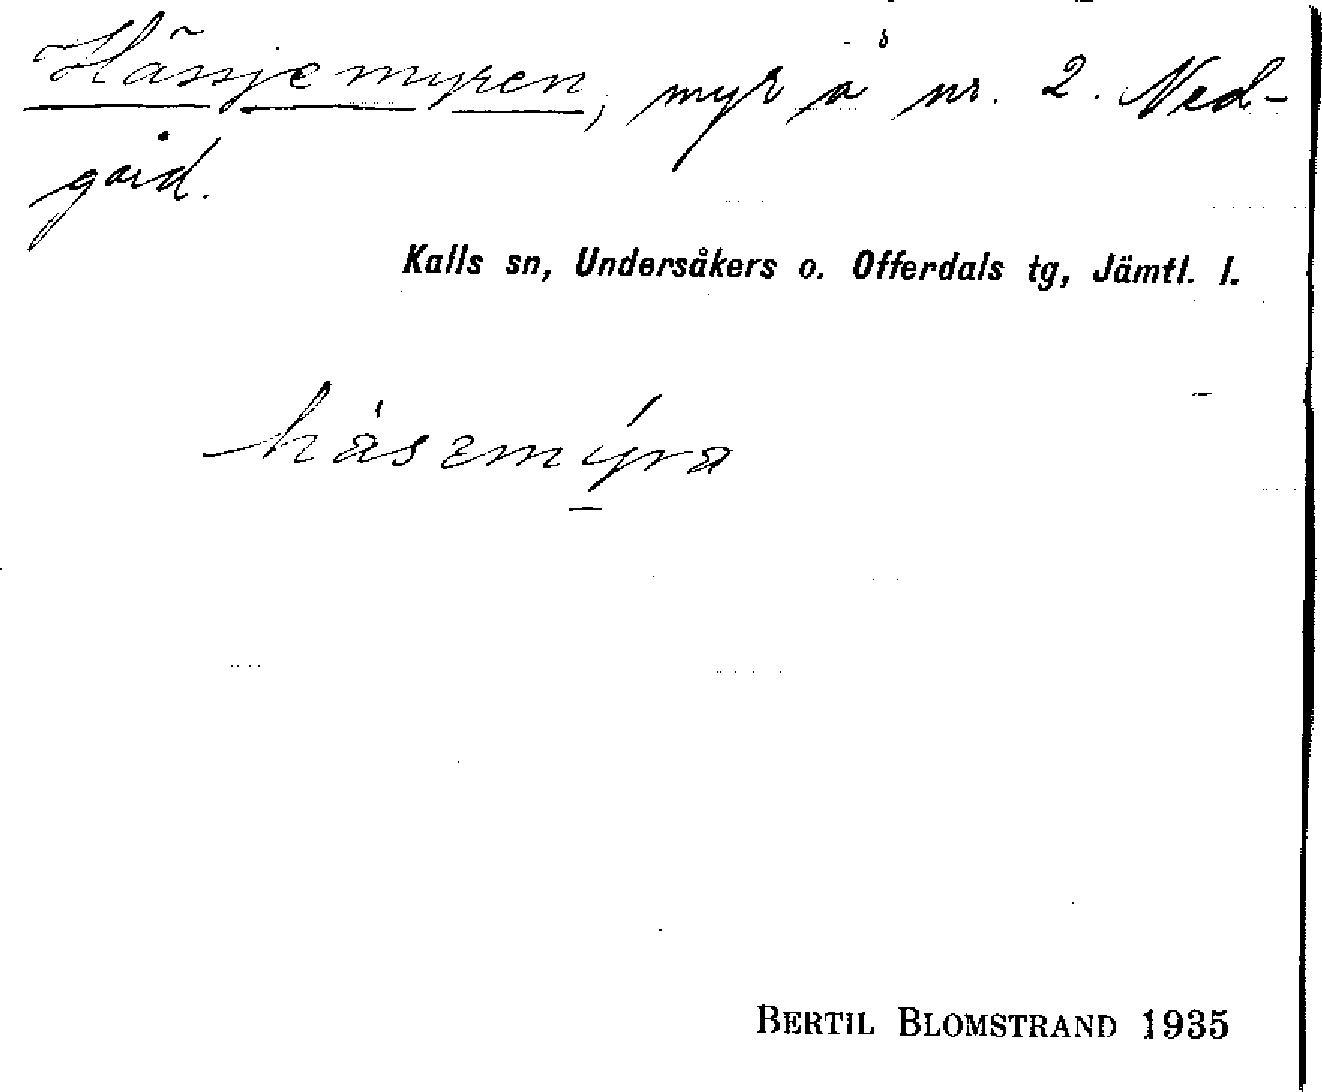 Hässjemyren, myr å nr. 2. Ned-
gård.
Kalls sn, Undersåkers o. Offerdals tg, Jämtl. l.
BERTIL BLOMSTRAND 1935